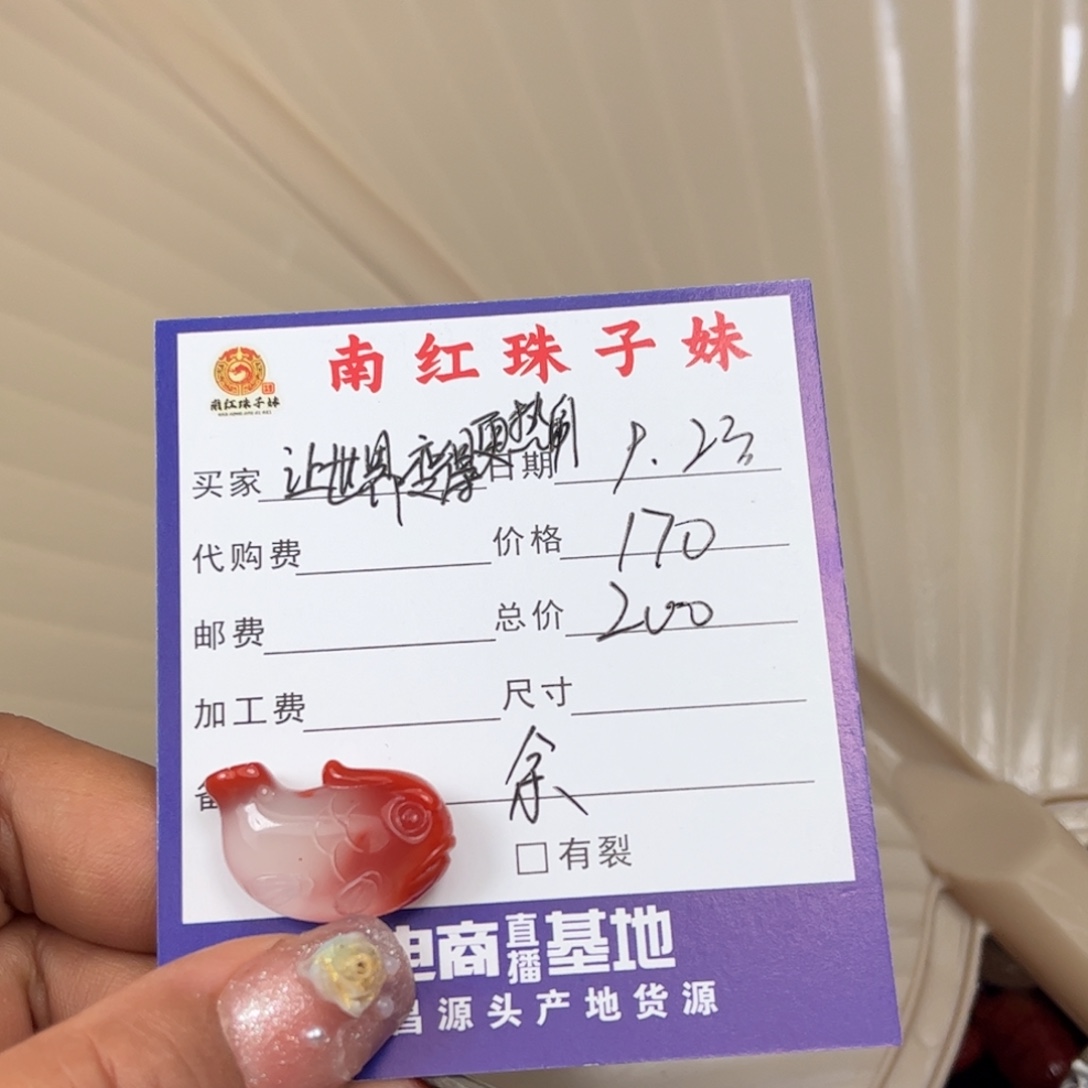 南红珠子妹
南红珠子妹
买家 让世界变得更热闹 日期 9.23
代购费 价格 170
邮费 总价 200
加工费 尺寸
余
□有裂
电商直播基地
昌源头产地货源